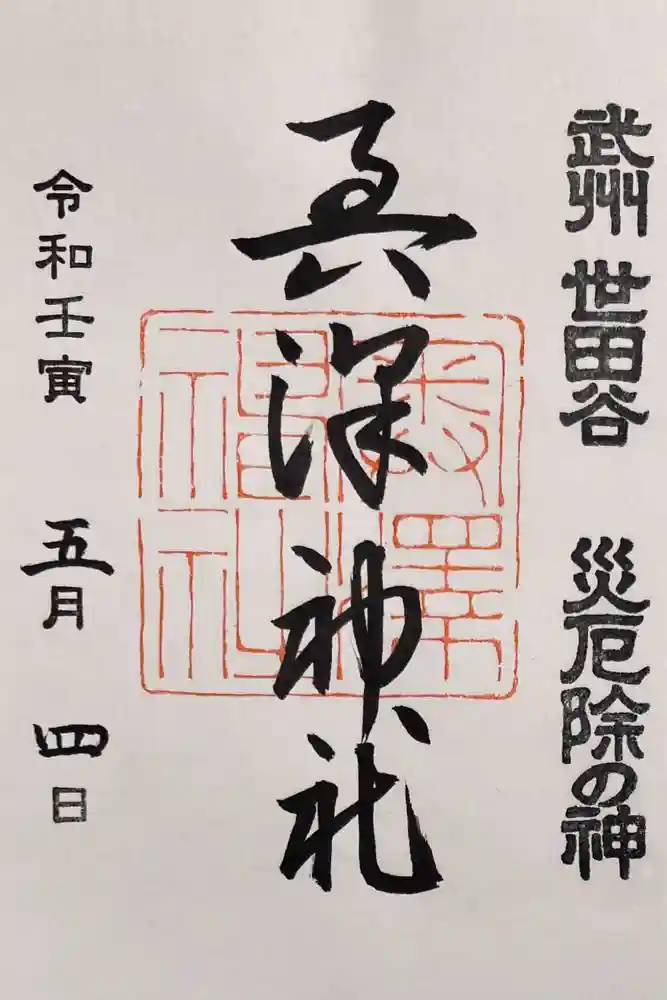 武州 世田谷 災厄除の神
奥澤神社
奥澤神社
令和壬寅 五月 四日